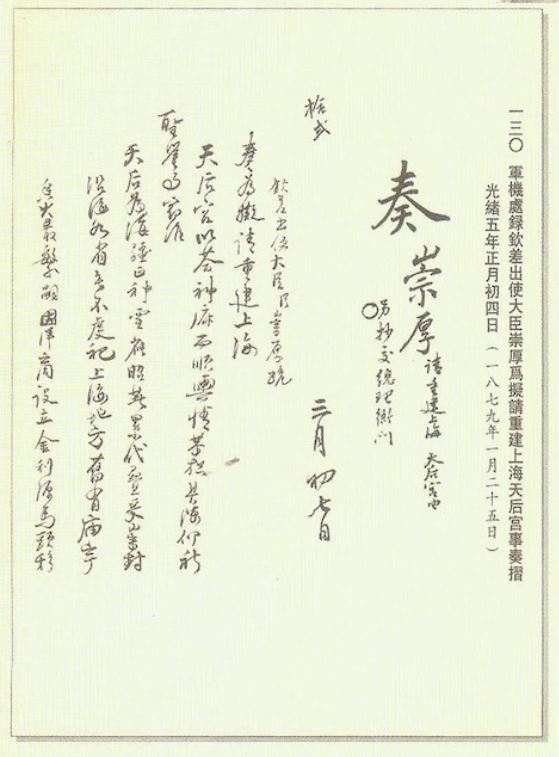 一三〇　軍機處録欽差出使大臣崇厚爲擬請重建上海天后宮事奏摺
光緒五年正月初四日（一八七九年一月二十五日）
奏 崇厚 請重建上海 天后宮由
另抄交總理衙門
二月初七日
欽差出使大臣臣崇厚跪
奏爲擬請重建上海
天后宮以答神庥而順輿情恭摺具陳仰祈
聖鑒事竊准
天后爲海疆正神靈應昭著累代疊受崇封
沿海各省無不虔祀上海地方舊有廟宇
因洋商設立金利源馬頭移